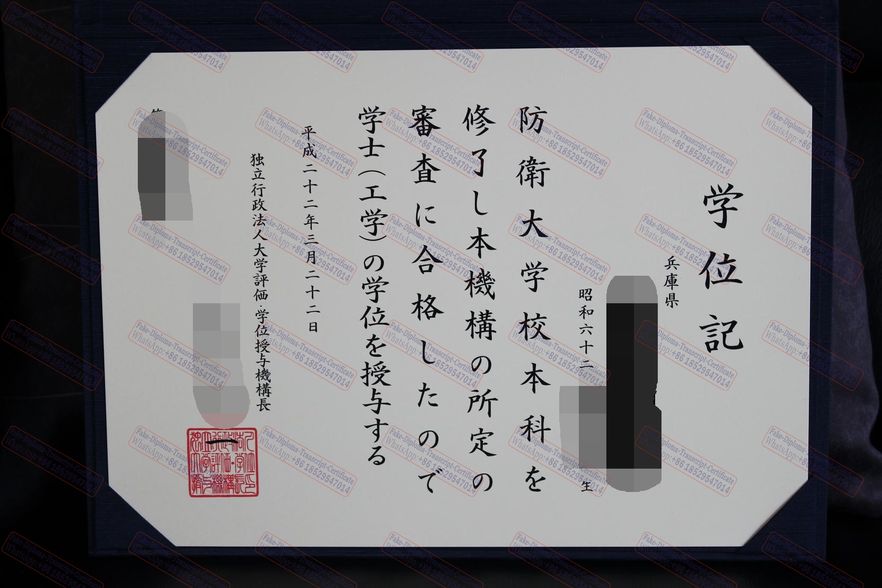 学位記
兵庫県
昭和六十二
生
防衛大学校本科を
修了し本機構の所定の
審査に合格したので
学士（工学）の学位を授与する
平成二十二年三月二十二日
独立行政法人大学評価・学位授与機構長
Fake-Diploma-Transcript-Certificate
WhatsApp:+86 18529547014